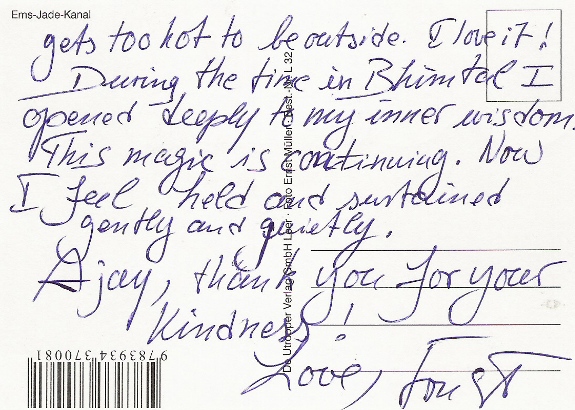 Ems-Jade-Kanal
gets too hot to be outside. I love it!
During the time in Bhimtal I
opened deeply to my inner wisdom.
This magic is continuing. Now
I feel held and sustained
gently and quietly.
Ajay, thank you for your
Kindness!
Love,
De Utrooper Verlag GmbH Leer · Foto Ernst Müller · Best.-Nr. L 32
9 783934 370081